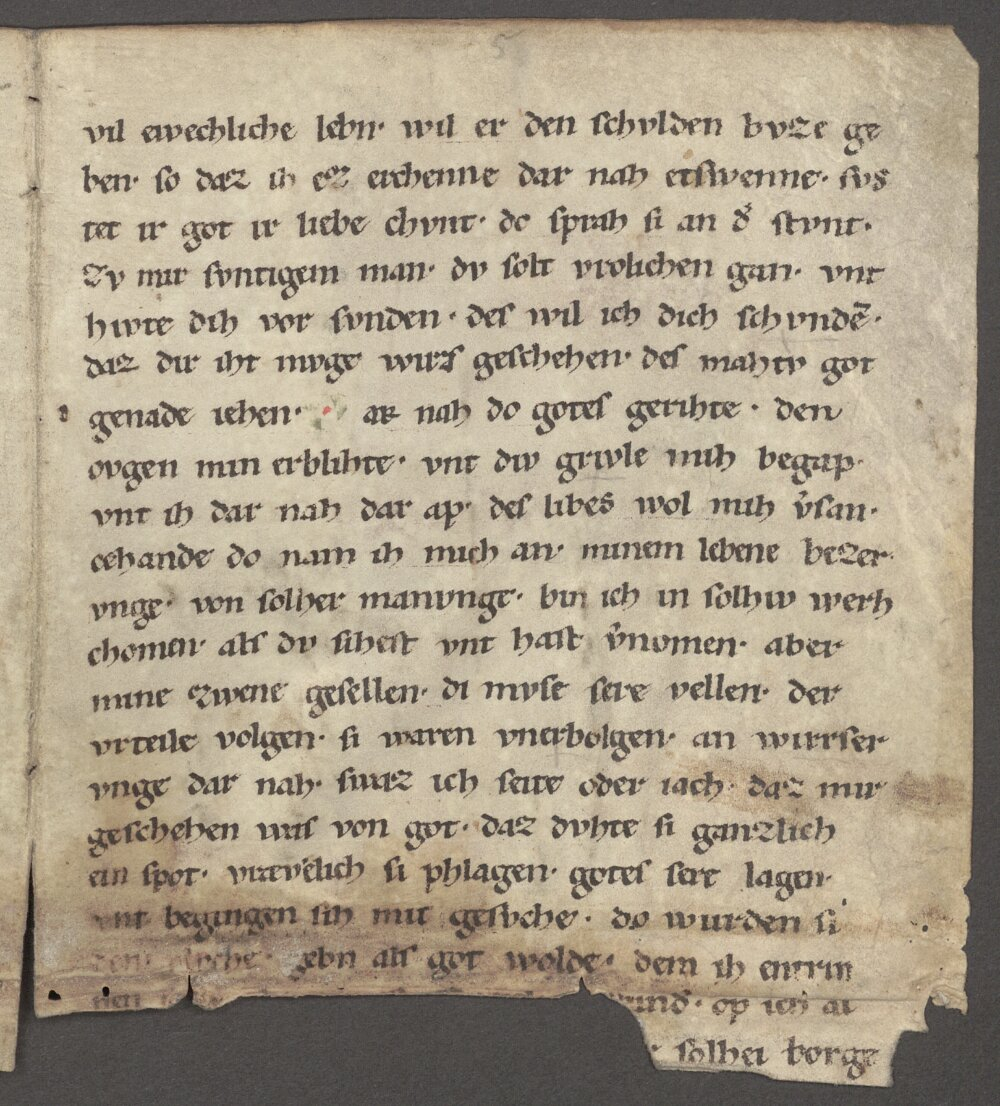 5
vil ewechliche lebn· wil er den schvlden bvze ge
ben· so daz ih ez erchenne dar nah etswenne· svs
tet ir got ir liebe chvnt· do sprah si an d͛ stvnt·
Zv mir svntigem man· dv solt vrolichen gan· vnt
hvte dih vor svnden· des wil ich dich schvndē·
daz dir iht mvge wirs geschehen· des mahtv got
genade iehen· ar nah do gotes gerihte· den
ovgen min erblihte· vnt div grivle mih begap·
vnt ih dar nah dar ap· des libes wol mih v͛san·
cehande do nam ih mich an· minem lebene bezer
vnge· von solher manvnge· bin ich in solhiv werh
chomen· als dv sihest vnt hast v͛nomen· aber
mine zwene gesellen· di mvse sere vellen· der
vrteile volgen· si waren vnerbolgen· an wirser
vnge dar nah· swaz ich seite oder iach· daz mir
geschehen was von got· daz dvhte si ganzlich
ein spot· si phlagen· gotes sere lagen·
vnt begingen sih mit gesvche· do wurden si
gebn als got wolde· dem ih entrin
nen op ich ai
solhei borge